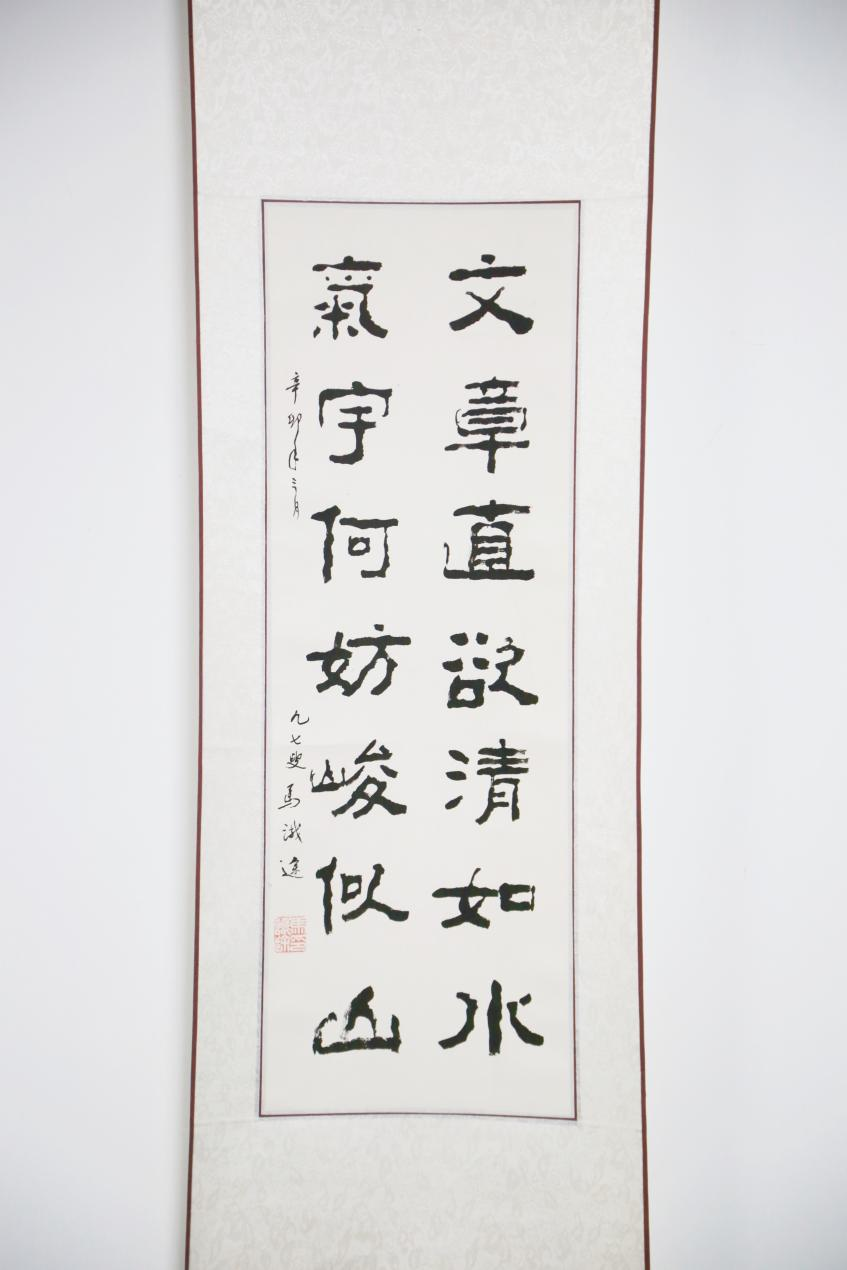 文章直欲清如水
氣宇何妨峻似山
辛卯年三月
九七叟馬識途